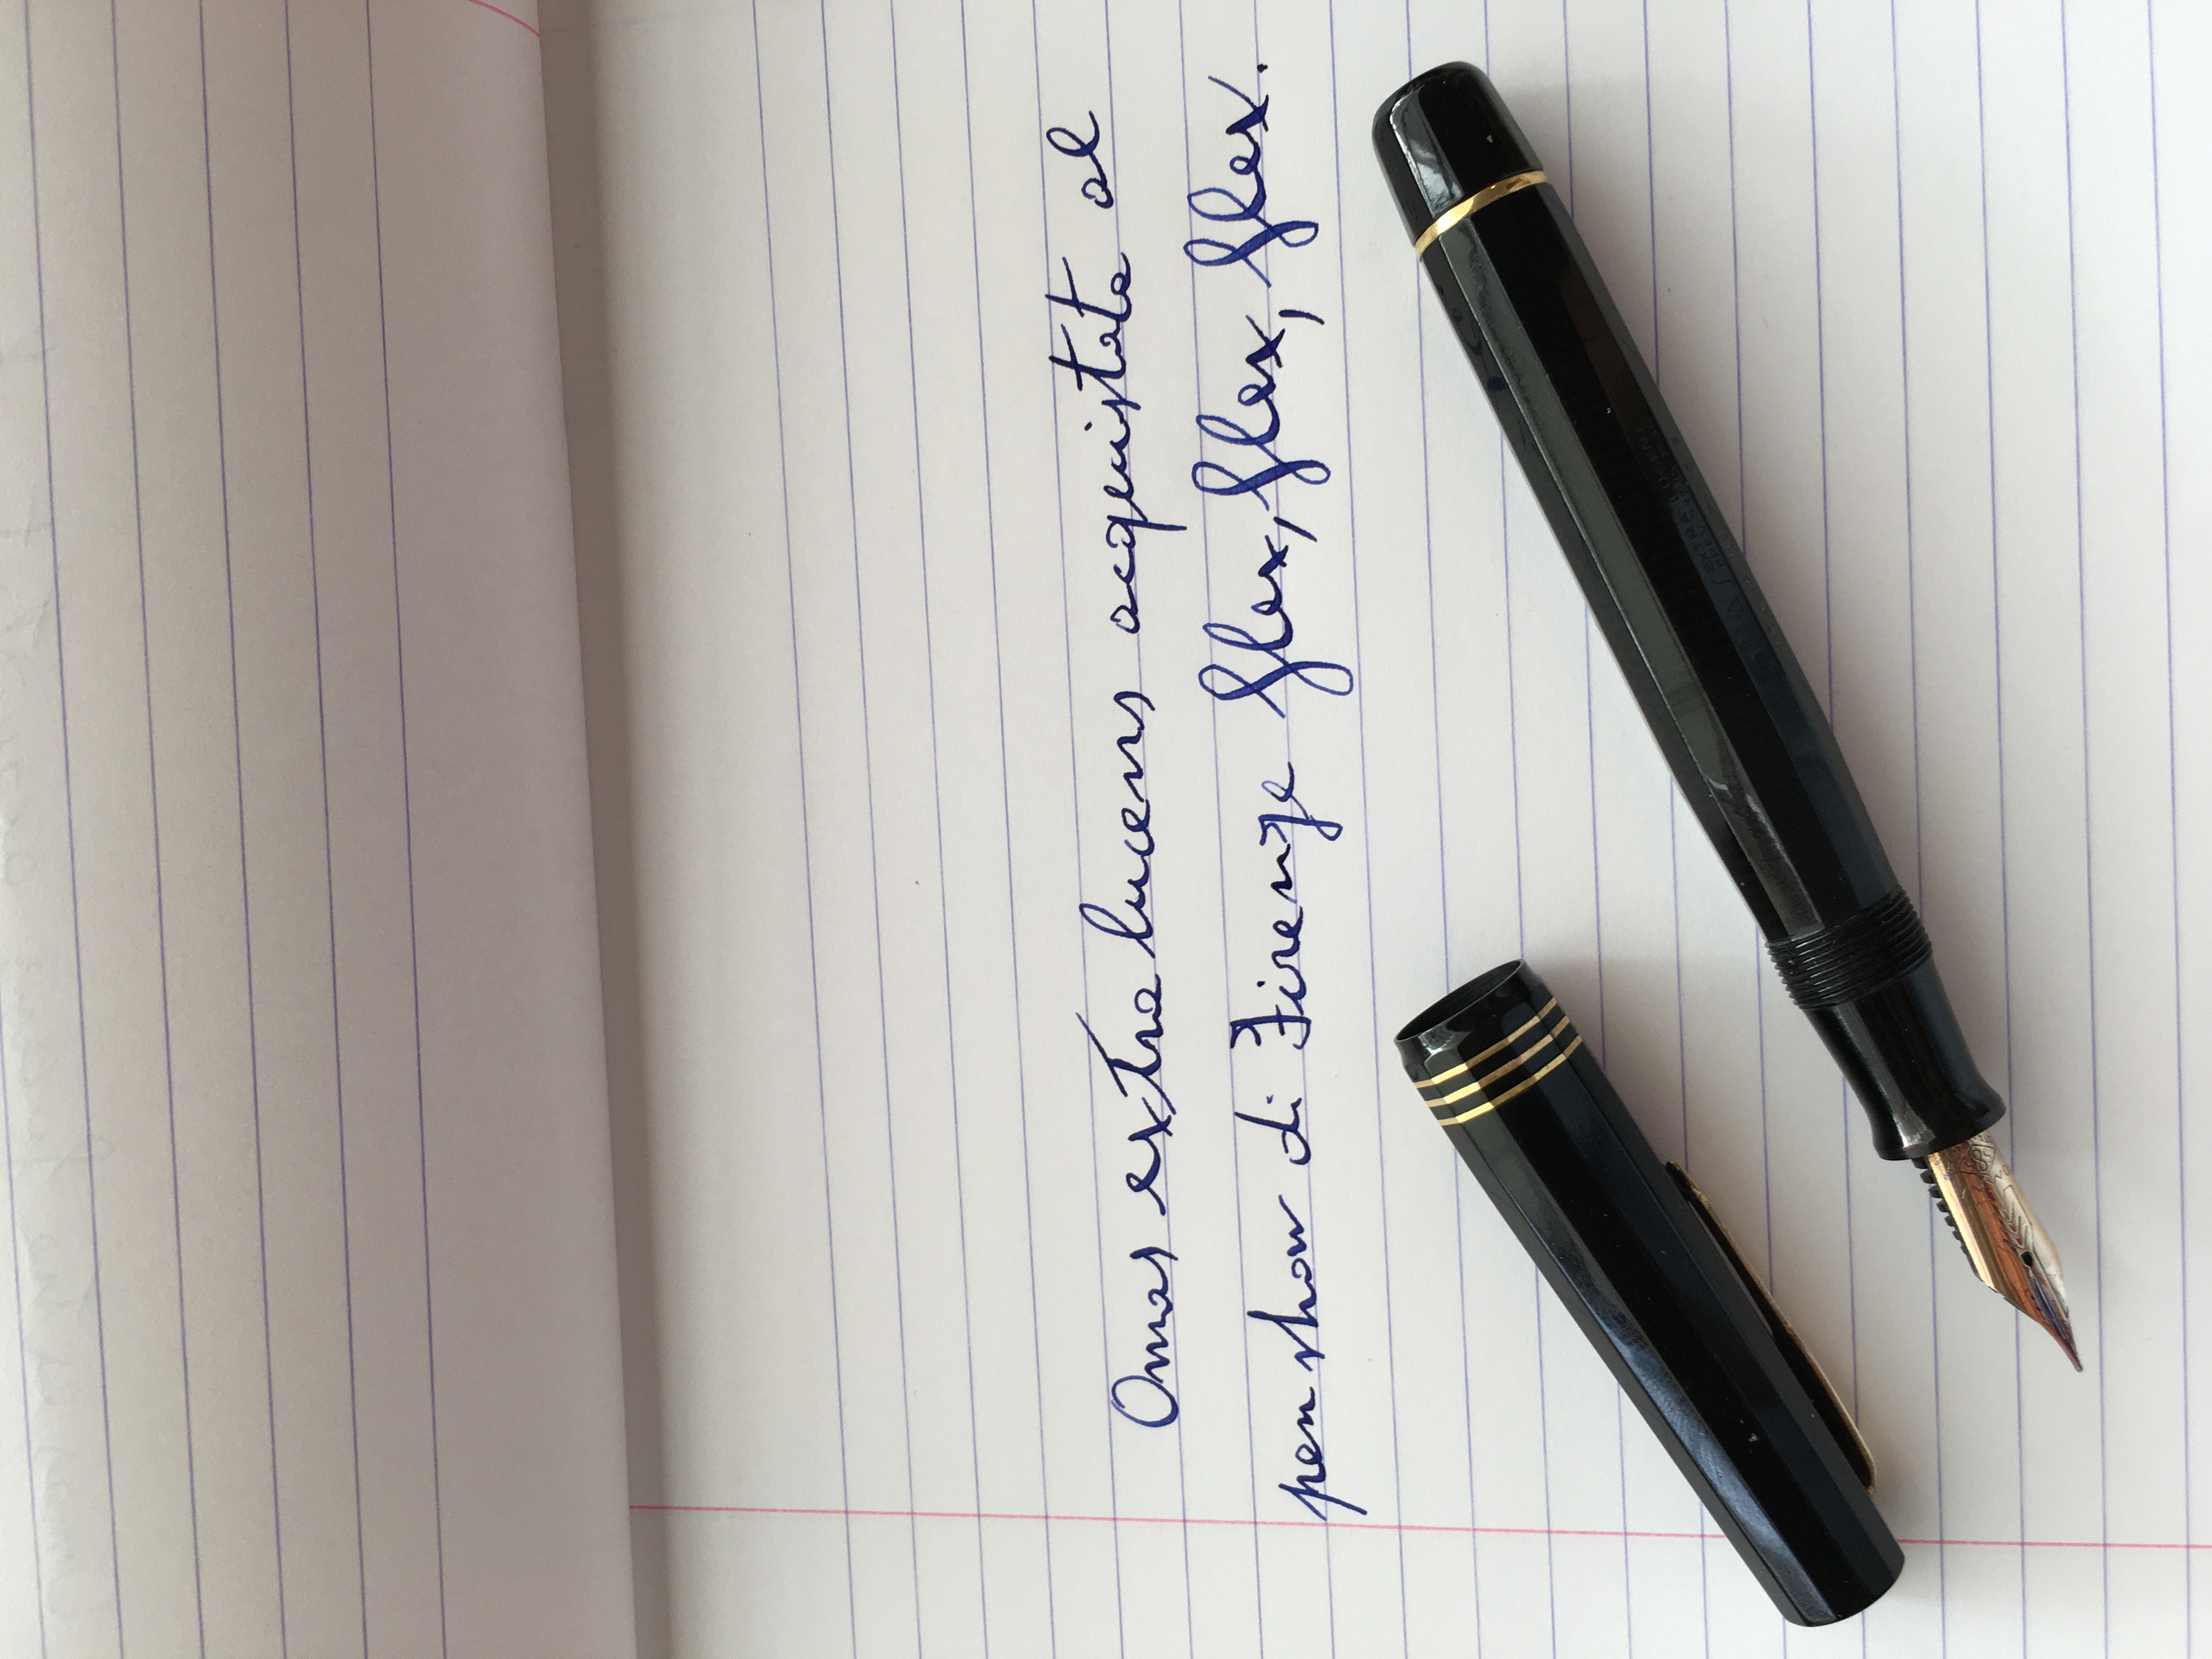 Omas extra lucens acquistata al
pen show di Firenze flex, flex, flex.
EXTRA LUCENS